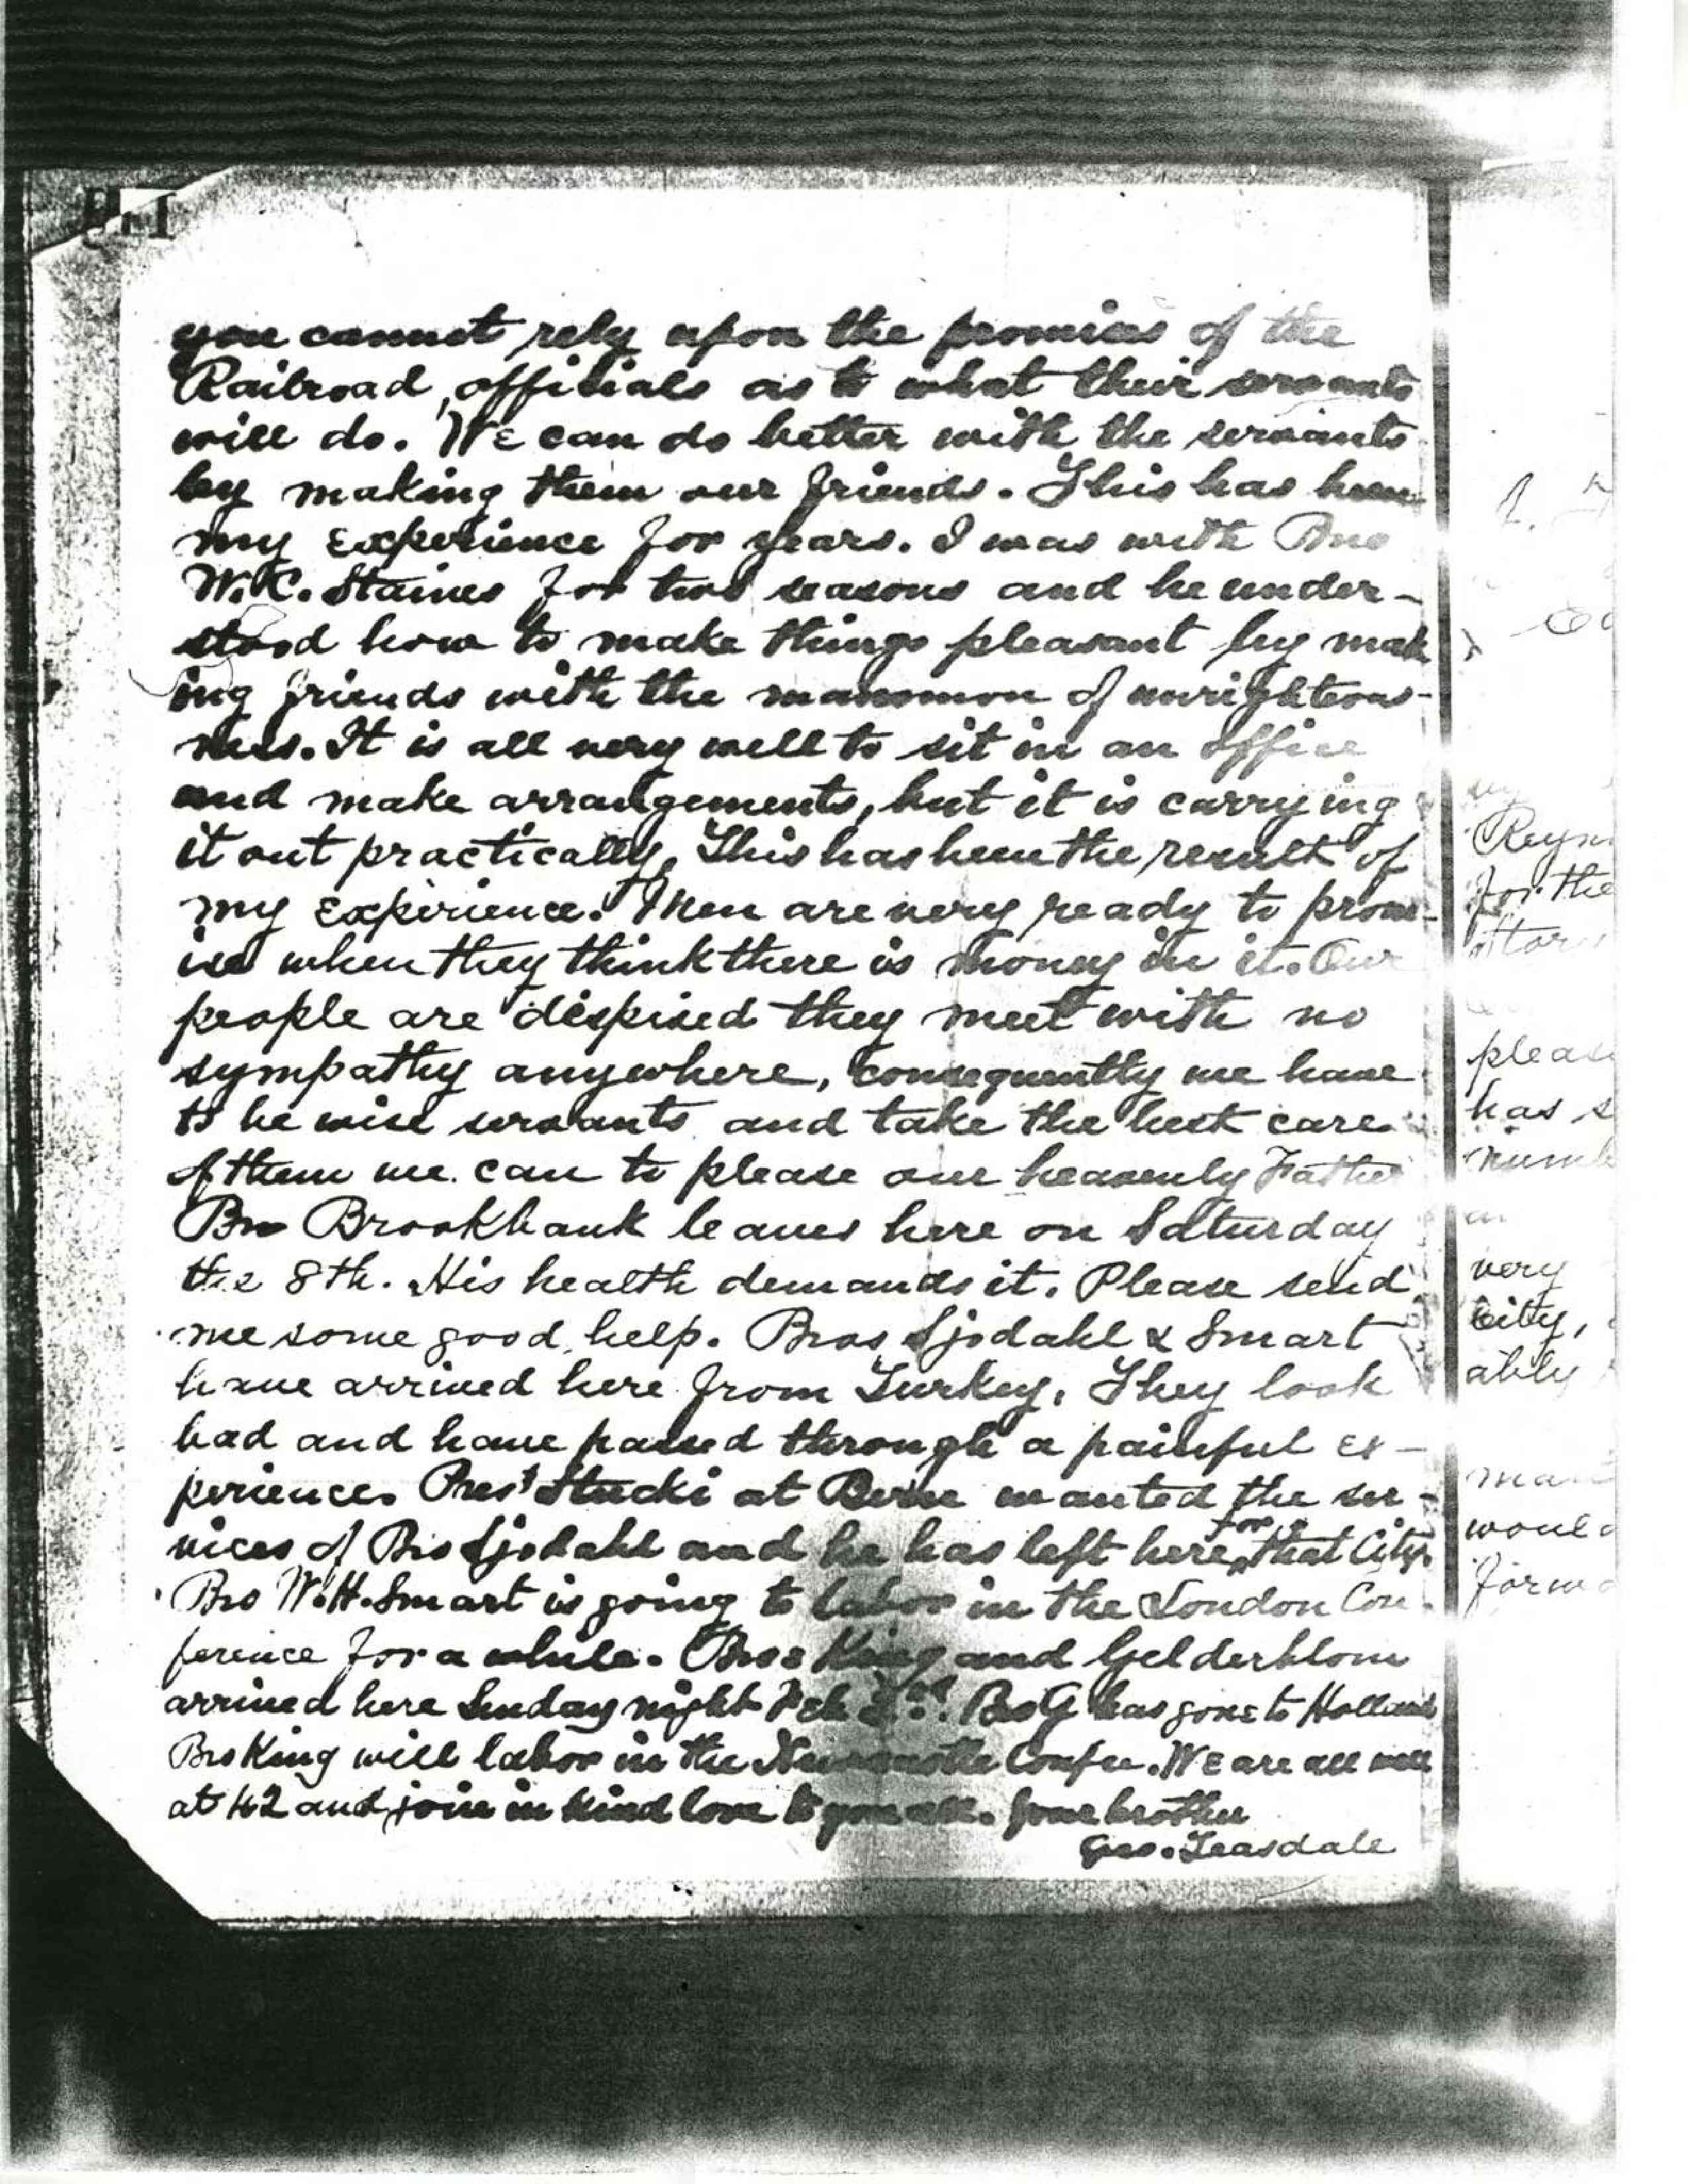 you cannot rely upon the promises of the
Railroad officials as to what their servants
will do. We can do better with the servants
by making them our friends. This has been
my experience for years. I was with Bro
W.C. Staines for two seasons and he under-
stood how to make things pleasant by mak
ing friends with the mammon of unrighteous-
ness. It is all very well to sit in an office
and make arrangements, but it is carrying
it out practically, This has been the result of
my experience. Men are very ready to prom-
ise when they think there is money in it. Our
people are despised they meet with no
sympathy anywhere, consequently we have
to be wise servants and take the best care
of them we can to please our heavenly Father
Bro Brookbank leaves here on Saturday
the 8th. His health demands it. Please send
me some good help. Bros Sjodahl & Smart
have arrived here from Turkey, They look
bad and have passed through a painful ex-
perience. Prest Stucki at Berne wanted the ser-
vices of Bro Sjodahl and he has left here for that City.
Bro W.H. Smart is going to labor in the London Con-
ference for a while. Bros King and Gelderblom
arrived here Sunday night Feb 2nd. Bro G has gone to Holland
Bro King will labor in the Newcastle Confce. We are all well
at 42 and join in kind love to you all. Your brother
Geo. Teasdale
Reyn
for the
pleas
has s
numb
very
City,
ably
man
would
form